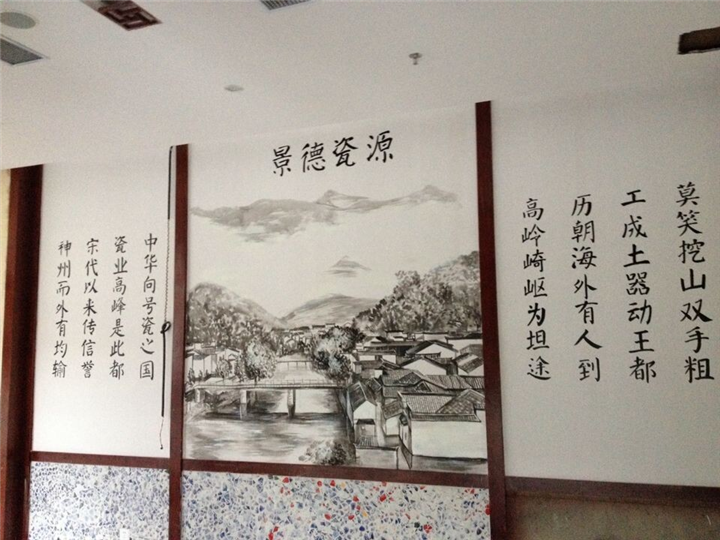 景德瓷源
莫笑挖山双手粗
工成土器动王都
历朝海外有人到
高岭崎岖为坦途
中华向号瓷之国
瓷业高峰是此都
宋代以来传信誉
神州而外有均输